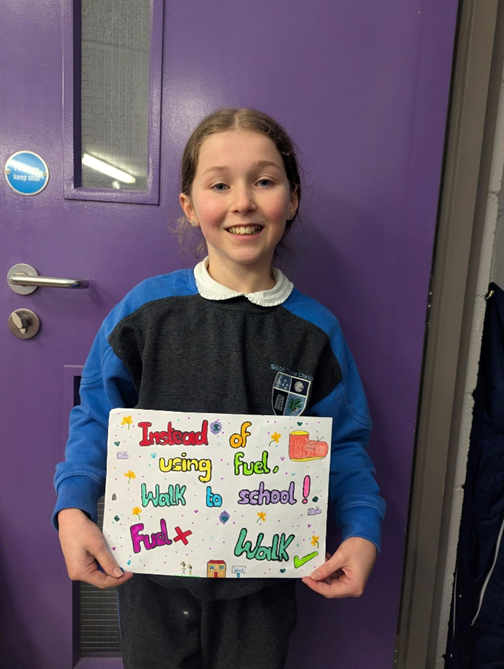 keep shut
Instead of
using fuel,
Walk to school!
Fuel x
Walk ✓